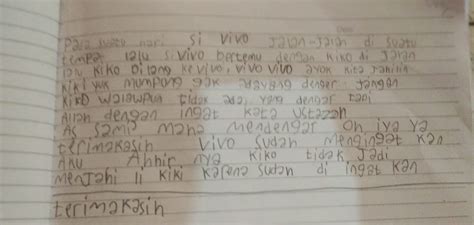 Pada suatu hari si vivo Jalan-Jalan di suatu
tempat lalu si vivo bertemu dengan kiko di Jalan
lalu kiko bilang ke vivo, vivo vivo ayok kita Jahilin
kiki yuk mumpung gak ada yang denger. Jangan
kiko walawpun tidak ada, yang dengar tapi
Allah dengan ingat kata Ustazah
As sami mana mendengar Oh iya ya
terimakasih vivo sudah mengingat kan
Aku Akhir nya kiko tidak Jadi
menjahi li kiki karena sudah di ingat kan
terimakasih